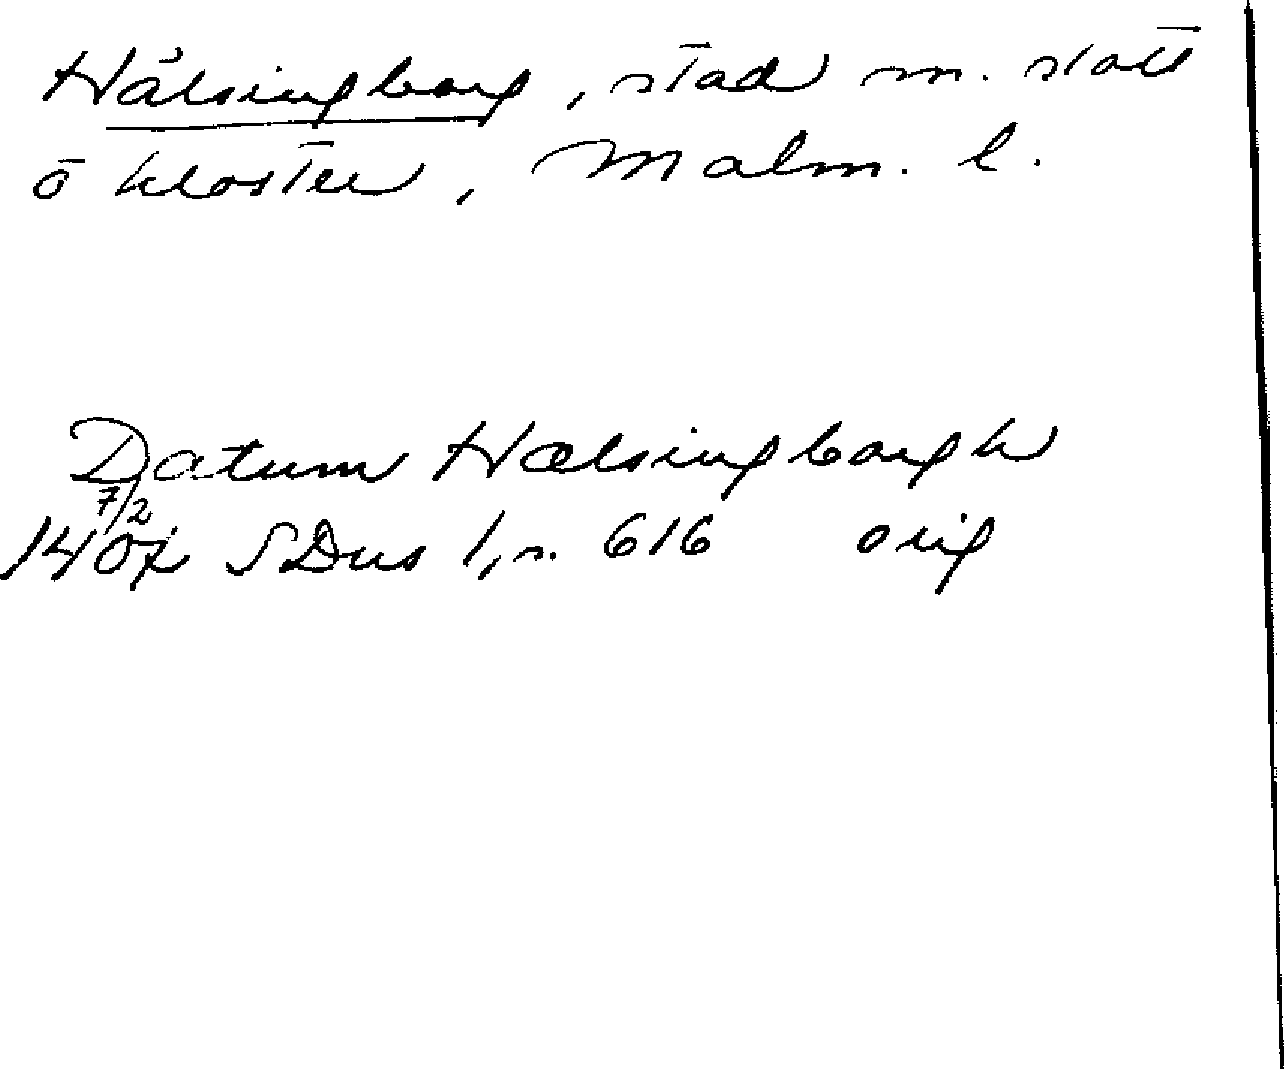 Hälsingborg, stad m. slott
o kloster, Malm. l.
Datum Hælsingborgh
7/2
1407 SDns 1, n. 616 orig